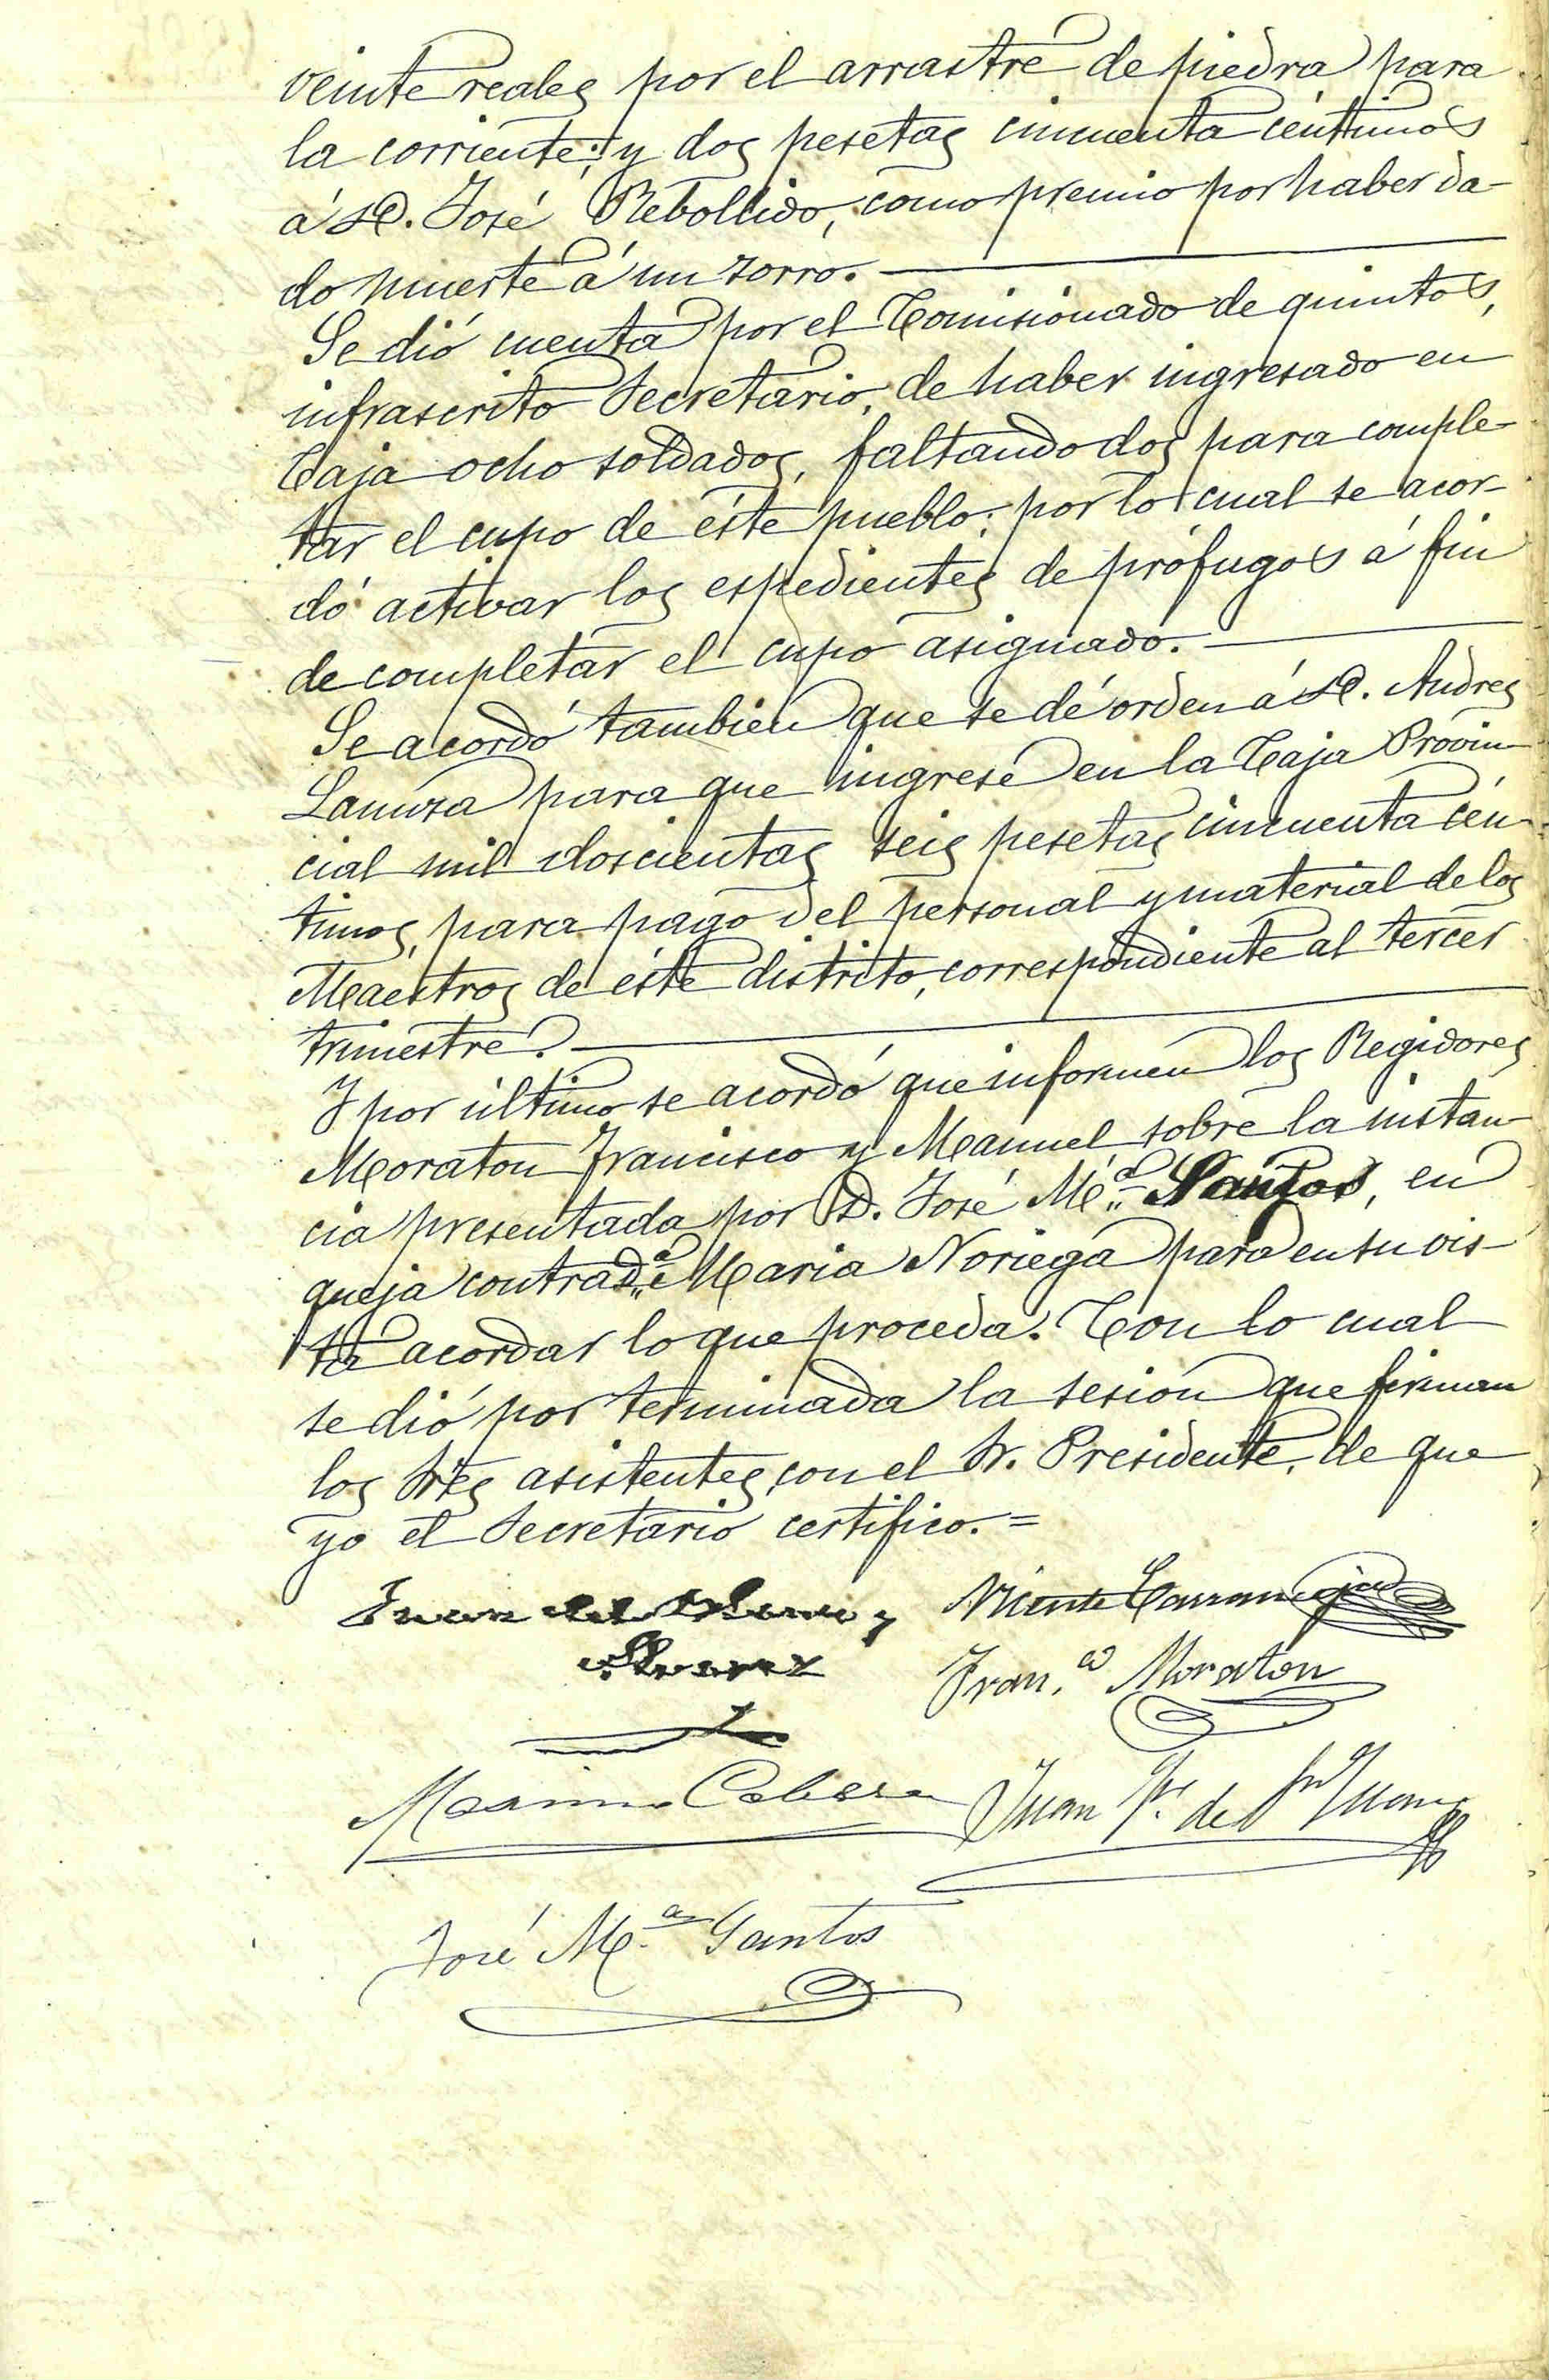 veinte reales por el arrastre de piedra para
la corriente; y dos pesetas cincuenta céntimos
á D. José Rebollido, como premio por haber da-
do muerte á un zorro.
Se dió cuenta por el Comisionado de quintos,
infrascrito Secretario, de haber ingresado en
Caja ocho soldados, faltando dos para comple-
tar el cupo de éste pueblo; por lo cual se acor-
dó activar los espedientes de prófugos á fin
de completar el cupo asignado.
Se acordó tambien que se dé orden á D. Andres
Lamuza para que ingrese en la Caja Provin-
cial mil doscientas seis pesetas cincuenta cén-
timos, para pago del personal y material de los
Maestros de éste distrito, correspondiente al tercer
trimestre.
Y por último se acordó que informen los Regidores
Moraton Francisco y Manuel, sobre la instan-
cia presentada por D. José M.ª Santos, en
queja contra D.ª Maria Noriega para en su vis-
ta acordar lo que proceda. Con lo cual
se dió por terminada la sesión que firman
los Sres asistentes con el Sr. Presidente, de que
yo el Secretario certifico.=
Juan del y Vicente
Alvarez Fran.co Moraton
Juan de Sn Juan
José M.ª Santos